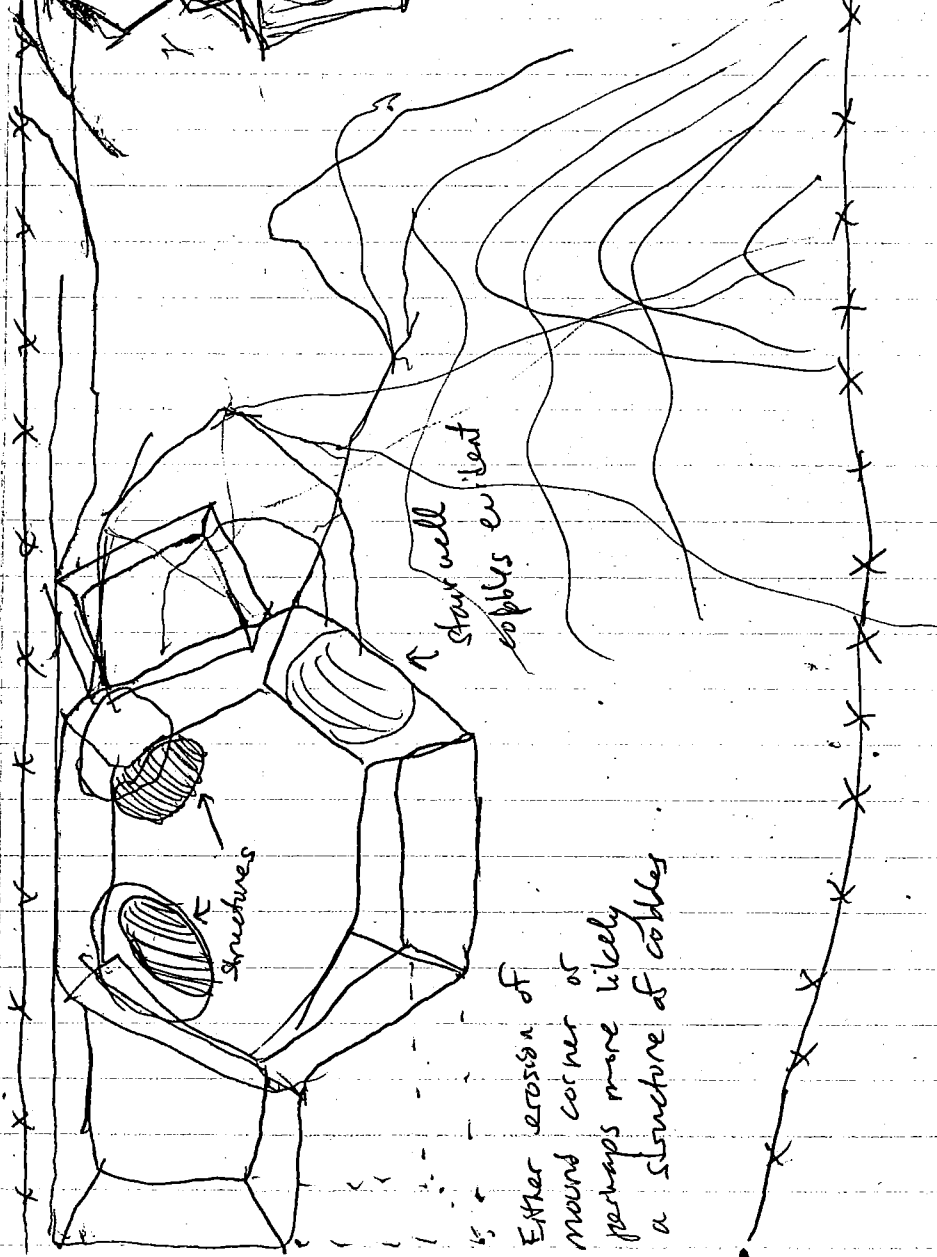 structures
stairwell
cobbles evident
Either erosion of
mound corner or
perhaps more likely
a structure of cobbles